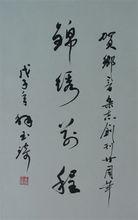 贺乡音杂志创刊廿周年
锦绣前程
戊子年